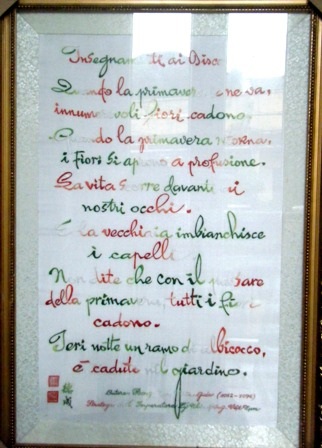 Insegnamenti ai
Quando la primavera se ne va,
innumerevoli fiori cadono,
Quando la primavera ritorna,
i fiori si aprono a profusione.
La vita scorre davanti ai
nostri occhi.
E la vecchiaia imbianchisce
i capelli
Non dite che con il passare
della primavera, tutti i fiori
cadono.
Ieri notte un ramo di albicocco,
è caduto nel giardino.